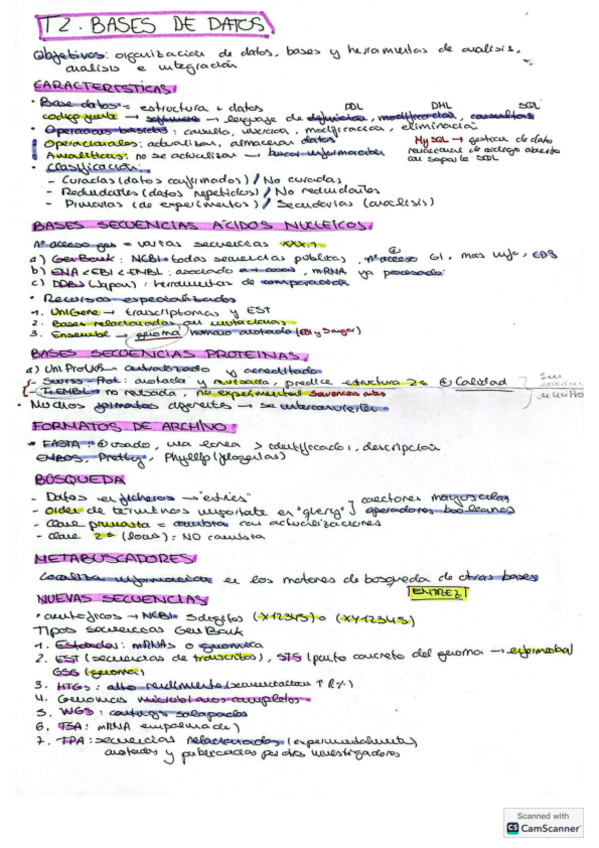 T2. BASES DE DATOS
Objetivos: organización de datos, bases y herramientas de análisis,
análisis e integración
CARACTERÍSTICAS
· Base datos = estructura + datos DDL DML SQL
código fuente → software → lenguaje de definición, modificación, consultas
· Operaciones básicas: consulta, inserción, modificación, eliminación
Operacionales: actualizar, almacenar datos
My SQL → gestor de dato
Analíticos: no se actualizan → buscar información
relacional de código abierto
con soporte SQL
· Clasificación:
- Curadas (datos confirmados) / No curadas
- Redundantes (datos repetidos) / No redundantes
- Primarias (de experimentos) / Secundarias (análisis)
BASES SECUENCIAS ÁCIDOS NUCLEICOS.
Nº acceso gen = varias secuencias XXX.1
a) GenBank: NCBI → todas secuencias públicas, nº acceso GI, mas info, CDS
b) ENA < EBI < EMBL: asociado, mRNA ya procesado
c) DDBJ (Japón): herramientas de comparación
· Recursos especializados
1. UniGene → transcriptomas y EST
2. Bases relacionadas con mutaciones
3. Ensembl → genoma humano anotado (EBI y Sanger)
BASES SECUENCIAS PROTEÍNAS.
a) UniProtKB → centralizado y acreditado
- Swiss-Prot: anotada y revisada, predice estructura 2ª ⊕ Calidad
- TrEMBL: no revisada, no experimental
· Muchos formatos diferentes → se interconvierten
FORMATOS DE ARCHIVO
* FASTA: ⊕ usado, una línea > identificador, descripción
EMBOSS, Pretty, Phyllip (filogenias)
BÚSQUEDA
- Datos en ficheros → "entries"
- Orden de términos importante en "query" conectores mayúsculas
operadores booleanos
- Clave primaria = cambia con actualizaciones
- Clave 2ª (locus) = NO cambia
METABUSCADORES
Localiza información en los motores de búsqueda de otras bases
ENTREZ
NUEVAS SECUENCIAS
· científicos → NCBI: 5 dígitos (X12345) o (XY12345)
Tipos secuencias GenBank
1. Estándar: mRNAs o genómica
2. EST (secuencias de transcritos), STS (punto concreto del genoma → enfermedad)
GSS (genoma)
3. HTGs: alto rendimiento (secuenciación
4. Genomas microbianos completos
5. WGS: contings solapados
6. TSA: mRNA
7. TPA: secuencias relacionadas (experimentalmente)
anotadas y publicadas por otros investigadores
Scanned with
CS CamScanner